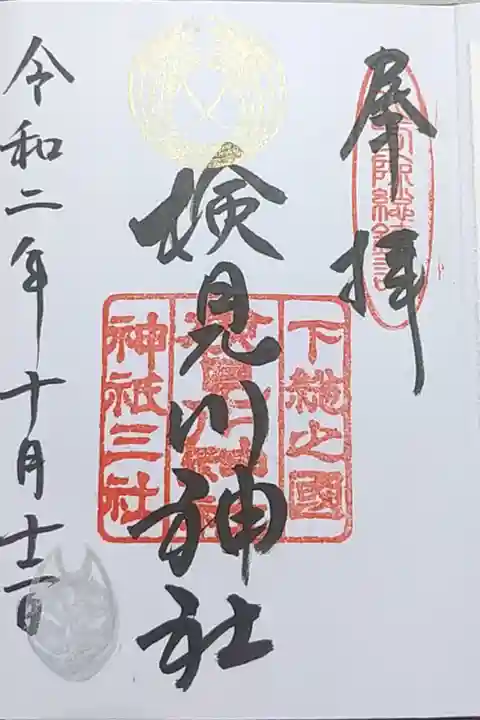 奉拝
下總之國
検見川神社
神祇三社
令和二年十月十二日